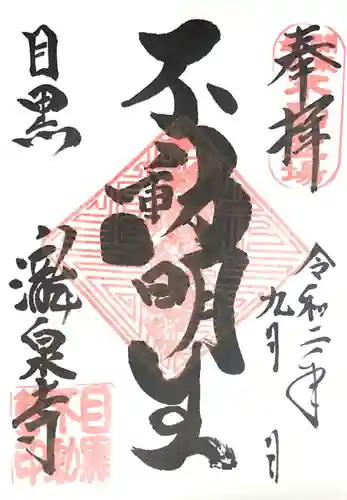 奉拝
令和二年
九月 日
不動明王
目黒
瀧泉寺
目黒
不動